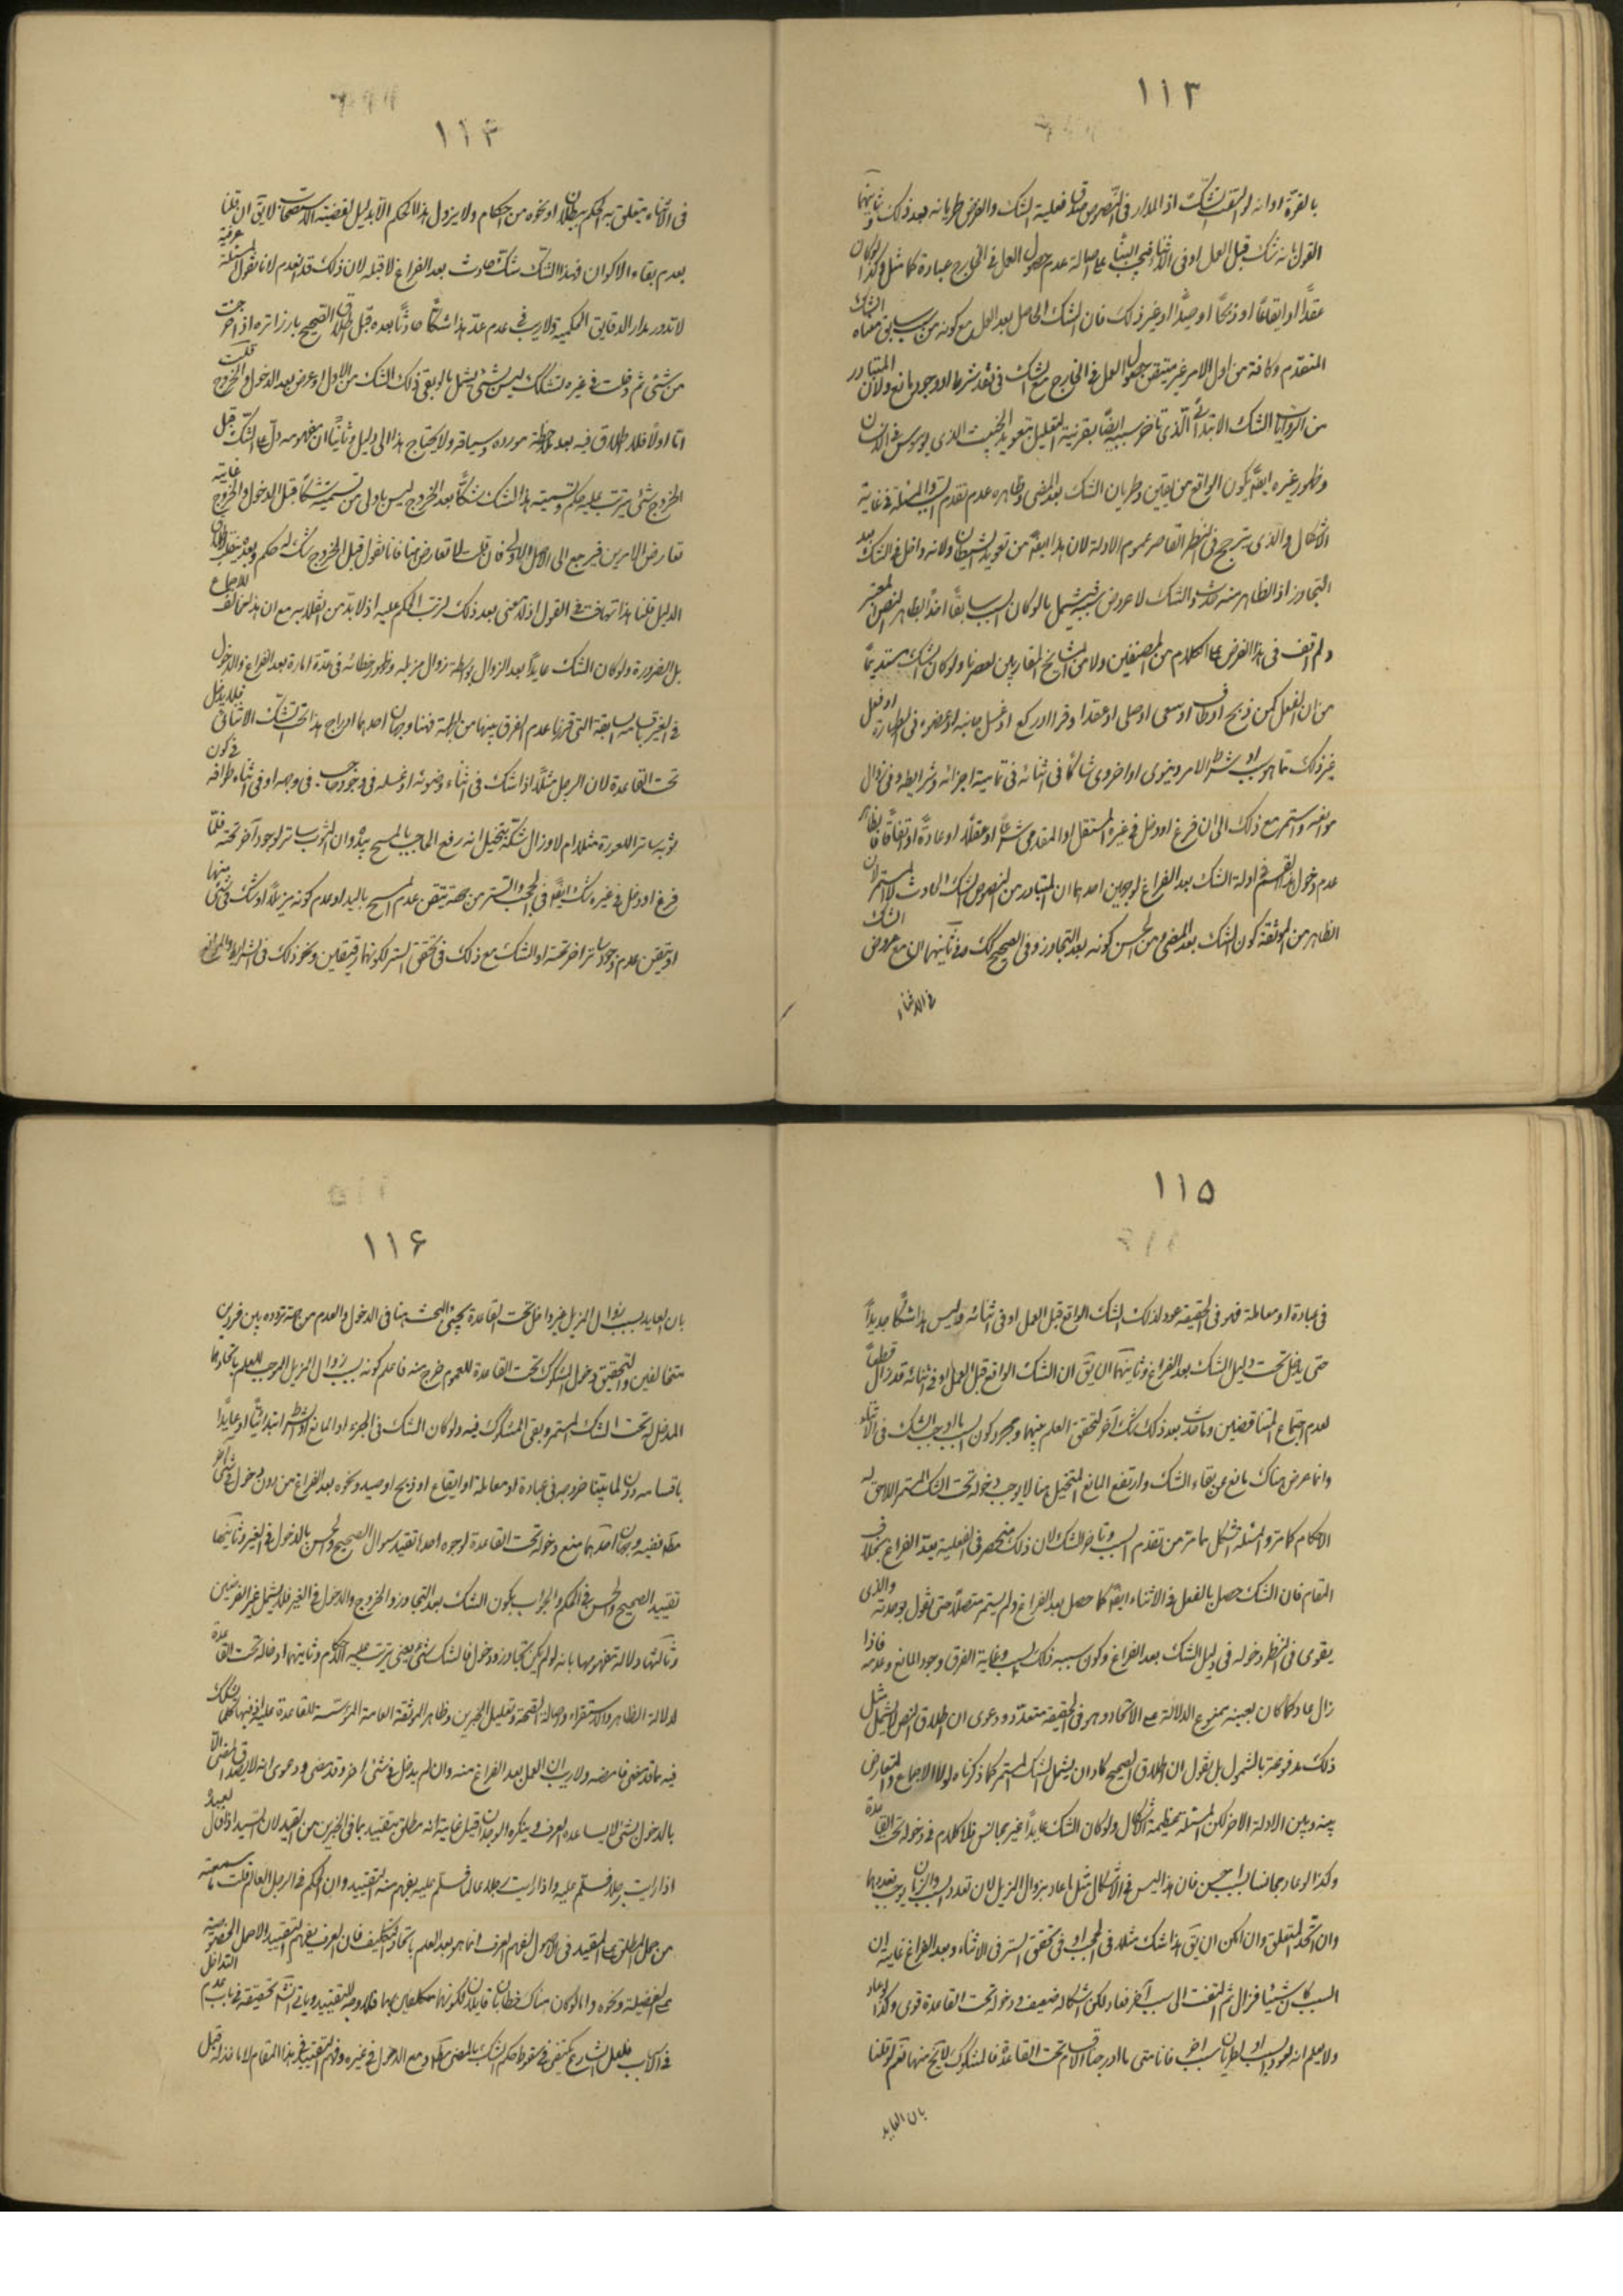 ١١٣
بالقوة او انه لو التفت لشك اذ المدار فى النصوص على فعلية الشك والفرض طريانه بعد ذلك وثانيهما
القول بانه شك قبل العمل او فى الاثناء فيجب البناء على اصالة عدم حصول العمل فى الخارج عبادة كما مثل وكذا لو كان
عقدًا او ايقاعًا او ذبحًا او صيدًا او غير ذلك فان الشك الحاصل بعد العمل مع كونه من سبب سابق معناه الشك
المتقدم وكانه من اول الامر غير متيقن حصول العمل فى الخارج مع الشك فى فقد شرط او وجود مانع ولان المتبادر
من الروايات الشك الابتدائى الذى تاخر سببه ايضًا بقرينة التعليل بتعويد الخبيث الذى يوسوس فى الانسان
وظهور غيره ايضًا بكون الواقع من يقين وطريان الشك بعد المضى وظاهره عدم تقدم السبب والمسئلة فى غاية
الاشكال والذى يترجح فى النظر القاصر عموم الادلة لان هذا ايضًا من تعويد الشيطان ولانه داخل فى الشك بعد
التجاوز اذ الظاهر منه حدوث الشك لا عروض سببه فيشمل ما لو كان السبب سابقًا اخذًا بظاهر النص المعتبر
ولم اقف فى هذا الفرض على كلام من المصنفين ولا من المشايخ المقاربين لعصرنا ولو كان الشك مستديمًا
من ان الفعل كمن ذبح او طاف او سعى او صلى او عقد او قرا او ركع او غسل جانبه او عضوه فى الطهارة او فعل
غير ذلك مما هو سبب او شرط لامر دينوى او اخروى شاكًا فى اثنائه فى تمامية اجزائه وشرايطه وفى زوال
موانعه واستمر مع ذلك الى ان فرغ او دخل فى غيره المستقل او المقدمى شرعًا او عقلًا او عادةً او اتفاقًا فالظاهر
عدم دخول هذا القسم فى ادلة الشك بعد الفراغ لوجهين احدهما ان المتبادر من النصوص الشك الحادث لا المستمر لان
الظاهر من الموثقة كون الشك بعد المضى ومن الحسن كونه بعد التجاوز وفى الصحيح كك وثانيهما ان مع عروض الشك
فى الاثناء
١١٤
فى الاثناء يتعلق به الحكم ببطلان او نحوه من احكام ولا يزول هذا الحكم الا بدليل لقضية الاستصحاب لا يق ان قلنا
بعدم بقاء الاكوان فهذا الشك شك حادث بعد الفراغ لا قبله لان ذلك قد انعدم لانا نقول المسئلة عرفية
لا تدور مدار الدقايق الحكمية ولا ريب فى عدم عد هذا شكًا حادثًا بعده قبل اطلاق الصحيح يا زرارة اذا خرجت
من شئ ثم دخلت فى غيره فشكك ليس بشئ يشمل ما لو بقى ذلك الشك من الاول او عرض بعد الدخول والخروج قلت
اما اولًا فلا اطلاق فيه بعد ملاحظة مورده وسياقه ولا يحتاج هذا الى دليل وثانيًا ان مفهومه دل على الشك قبل
الخروج شئ يترتب عليه حكم وتسمية هذا الشك شكًا بعد الخروج ليس باولى من تسميته شكًا قبل الدخول والخروج غايته
تعارض الامرين فيرجع الى الاصل الاولى فان قلت لا تعارض هنا فانا نقول قبل الخروج شك له حكم وبعده ينقلب
الدليل قلنا هذا تهافت فى القول اذ لا معنى بعد ذلك لترتب الحكم عليه اذ لا بد من انقلابه مع ان هذا مخالف للاجماع
بل الضرورة ولو كان الشك عايدًا بعد الزوال بواسطة زوال مزيله وظهور خطائه فى عدة امارة بعد الفراغ والدخول
فى الغير باقسامه السابقة التى قررنا عدم الفرق بينها من الجملة فهنا وجهان احدهما ادراج هذا تحت الشك الاثنائى فلا يدخل
تحت القاعدة لان الرجل مثلًا اذا شك فى اثناء وضوئه او غسله فى وجود حاجب فى وجهه او فى اثناء طوافه فى كون
ثوبه ساتر للعورة مثلا ام لا وزال شكه بتخيل انه رفع الحاجب بالمسح بيده وان الثوب ساتر لوجود آخر تحته فلما
فرغ او دخل فى غيره شك ايضًا فى الحجب والتستر من جهة تيقن عدم المسح باليد او عدم كونه مزيلًا او شك فى شئ منها
او تيقن عدم وجود ساتر اخر تحته او الشك مع ذلك فى تحقق الستر لكونهما رقيقين ونحو ذلك فى الشرايط والموانع
١١٥
فى عبادة او معاملة فهو فى الحقيقة عود لذلك الشك الواقع قبل العمل او فى اثنائه وليس هذا شكًا جديدًا
حتى يدخل تحت دليل الشك بعد الفراغ وثانيهما ان يق ان الشك الواقع قبل العمل او فى اثنائه قد زال قطعًا
لعدم اجتماع المتناقضين وما حدث بعد ذلك شك آخر لتحقق العلم بينهما ومجرد كون السبب ما اوجب الشك فى الاثناء
وانما عرض هناك مانع عن بقاء الشك وارتفع المانع المتخيل هنا لا يوجب دخوله تحت الشك المستمر اللاحق له
الاحكام كما مر والمسئلة اشكل مما مر من تقدم السبب وتاخر الشك لان ذلك منحصر فى الفعلية بعد الفراغ بخلاف
المقام فان الشك حصل بالفعل فى الاثناء ايضًا كما حصل بعد الفراغ ولم يستمر متصلًا حتى نقول بوحدته والذى
يقوى فى النظر دخوله فى دليل الشك بعد الفراغ وكون سببه ذلك السبب وغاية الفرق وجود المانع وعدمه فاذا
زال عاد كما كان بعينه ممنوع الدلالة على الاتحاد وهو فى الحقيقة متعدد ودعوى ان اطلاق النص لا يشمل مثل
ذلك مدفوعة بالشمول بل نقول ان اطلاق الصحيح كاد ان يشمل الشك المستمر كما ذكرناه لولا الاجماع والتعارض
بينه وبين الادلة الاخر لكن المسئلة عظيمة الاشكال ولو كان الشك عايدًا غير مجانس فلا كلام فى دخوله تحت القاعدة
وكذا لو عاد مجانسا لسبب اجنبى فان هذا ليس فى الاشكال مثل ما عاد بزوال المزيل لان تعدد السبب والزمان يوجب تعددهما
وان اتحد المتعلق وان امكن ان يق هذا شك مثلا فى الحجب او فى تحقق الستر فى الاثناء وبعد الفراغ غاية ان
السبب كان شيئا فزال ثم التفت الى سبب آخر فعاد لكن اشكاله ضعيف ودخوله تحت القاعدة قوى وكذا لو عاد
ولا يعلم انه لعود السبب او لطريان سبب اخر فانا متى ما ادرجنا الاقسام تحت القاعدة فالمشكوك لا يخرج منها نعم لو قلنا
بان العايد
١١٦
بان العايد بسبب زوال المزيل غير داخل تحت القاعدة يجيئ البحث هنا فى الدخول والعدم من جهة تردده بين فردين
متخالفين والتحقيق دخول المشكوك تحت القاعدة للعموم خرج منه ما علم كونه بسبب زوال المزيل الموجب للعلم باتحادهما
المدخل له تحت الشك المستمر وبقى المشكوك فيه ولو كان الشك فى الجزء او المانع او الشرط ابتدائيًا او عايدًا
باقسامه دون لما بينا خروجه فى عبادة او معاملة او ايقاع او ذبح او صيد ونحوه بعد الفراغ من دون دخول فى شئ آخر
مطلقا ففيه وجهان احدهما منع دخوله تحت القاعدة لوجوه احدها تقييد سوال الصحيح والحسن بالدخول فى الغير وثانيها
تقييد الصحيح والحسن فى الحكم والجواب بكون الشك بعد التجاوز والخروج والدخول فى الغير فلا يشمل غير الفرضين
وثالثها دلالة مفهومها بانه لو لم يكن تجاوز ودخول فالشك شئ يعنى يترتب عليه احكام وثانيتهما ادخاله تحت القاعدة
لدلالة الظاهر والاستقراء واصالة الصحة وتعليل الخبرين وظاهر الموثقة العامة المؤسسة للقاعدة عليه فان فيها كلما شككت
فيه مما قد مضى فامضه ولا ريب ان العمل بعد الفراغ منه وان لم يدخل فى شئ اخر قد مضى ودعوى انه لا يصدق المضى الا
بالدخول بشئ لا يساعده العرف وينكره الوجدان قيل غاية انه مطلق يتقيد بما فى الخبرين من القيد لان السيد اذا قال لعبده
اذا رايت رجلا فسلم عليه واذا رايت رجلا عالما فسلم عليه يفهم منه التقييد وان الحكم فى الرجل العالم قلت ما سمعته
من حمل المطلق على المقيد فى الاصول لفهم العرف انما هو بعد العلم باتحاد التكليف فان العرف يفهم التقييد لاصل الخصوصية
على الفضيلة ونحوه واما لو كان هناك خطابان قابلان لكونهما مكلفين بهما فلا وجه للتقييد وياتى انشاء الله تحقيقه فى باب عدم التداخل
فى الاسباب فلعل الشارع يكتفى فى سقوط حكم الشك بالمضى مطلقا ومع الدخول فى غيره وفهم التقييد فى هذا المقام